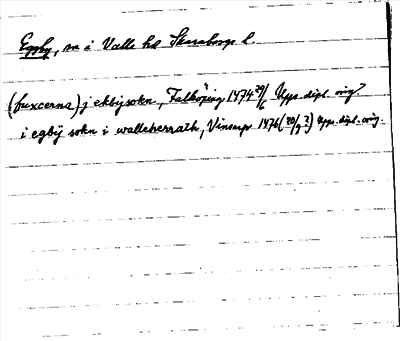 Eggby, sn i Valle hd Skaraborgs l.
(fuxcerna) j ekbijsokn, Falköping 1474 29/6 Upps. dipl. orig
i egbÿ sokn i walleherrath, Vinsarp 1476 (20/9 ?) Upps. dipl. orig.